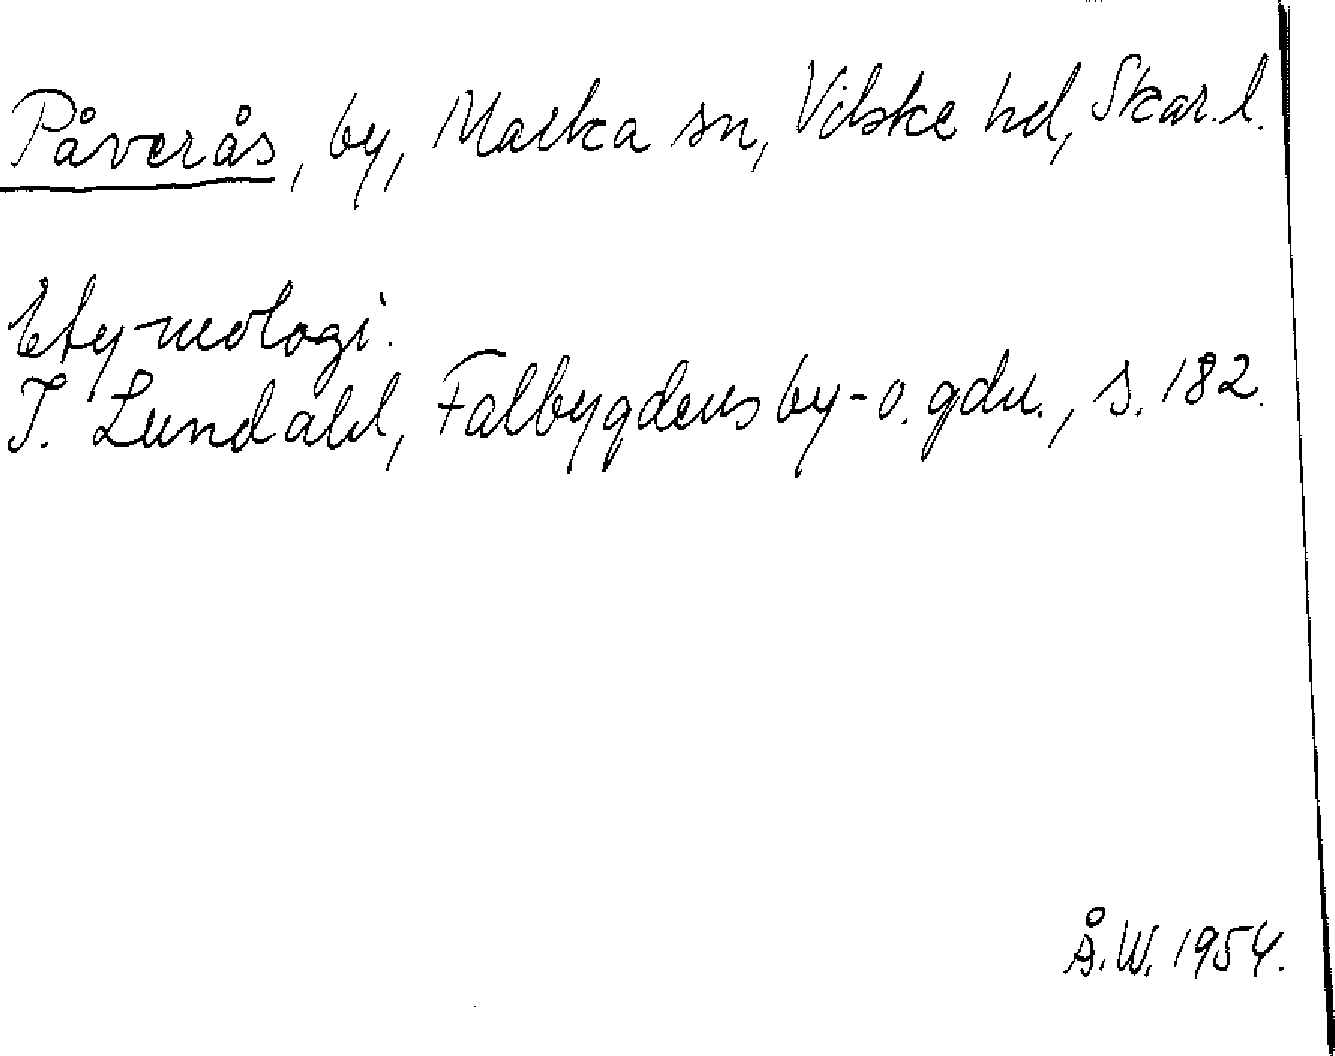 Påverås, by, Marka sn, Vilske hd, Skar. l.
Etymologi.
I. Lundahl, Falbygdens by- o. gdn., s. 182.
Å.W. 1954.